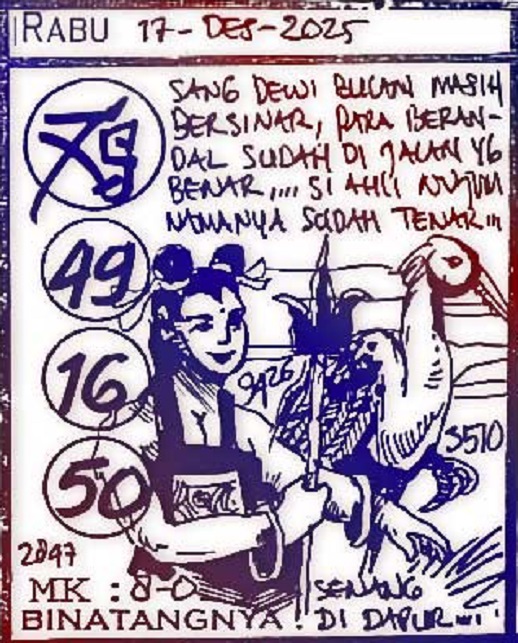 RABU 17-DES-2025
SANG DEWI BULAN MASIH
BERSINAR, PARA BERAN-
DAL SUDAH DI JALAN YG
BENAR,.... SI AHLI NUJUM
NAMANYA SUDAH TENAR...
49
16
50
9426
3510
2847
MK : 8-0
BINATANGNYA : SENANG
DI DAPUR....